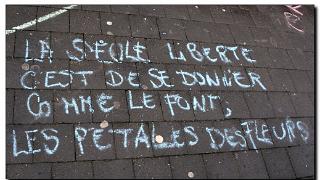 LA SEULE LIBERTE
C'EST DE SE DONNER
COMME LE FONT,
LES PETALES DES FLEURS